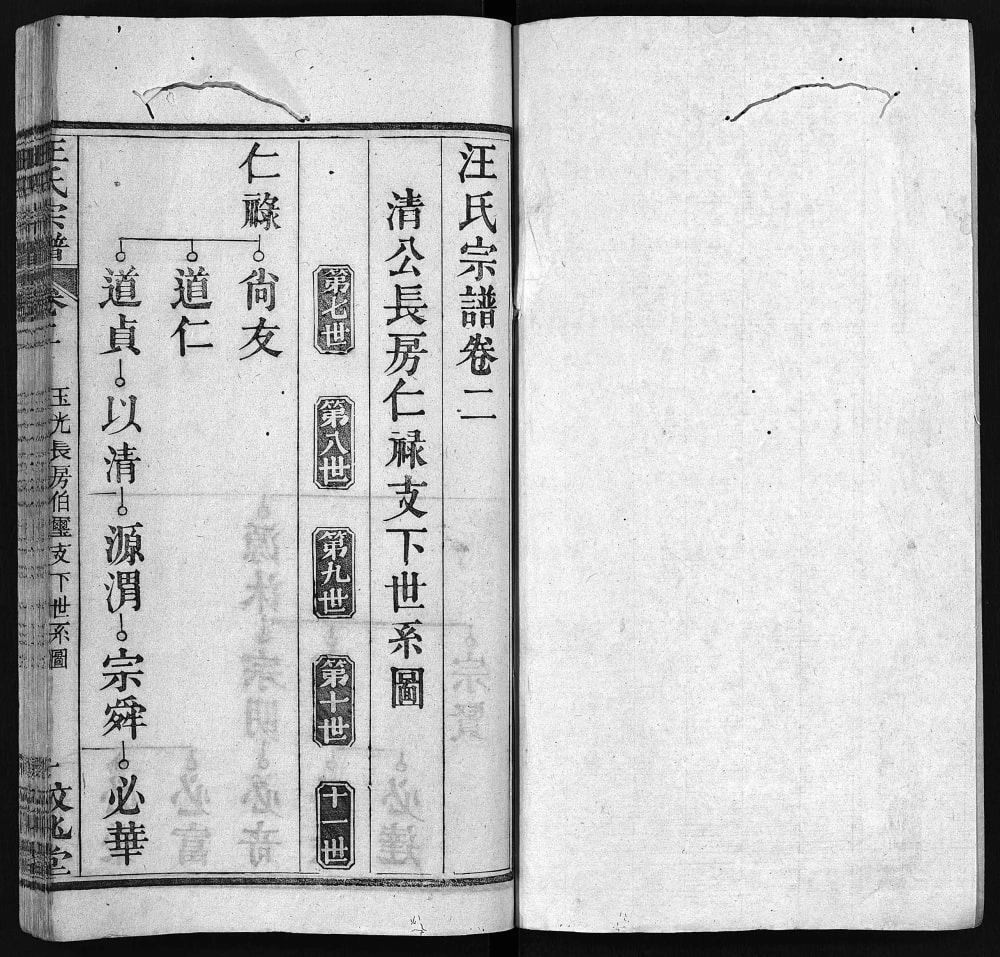 汪氏宗譜卷二
清公長房仁祿支下世系圖
第七世 第八世 第九世 第十世 十一世
仁祿 尙友
道仁
道貞 以清 源渭 宗舜 必華
汪氏宗譜 卷二 玉光長房伯璽支下世系圖 一